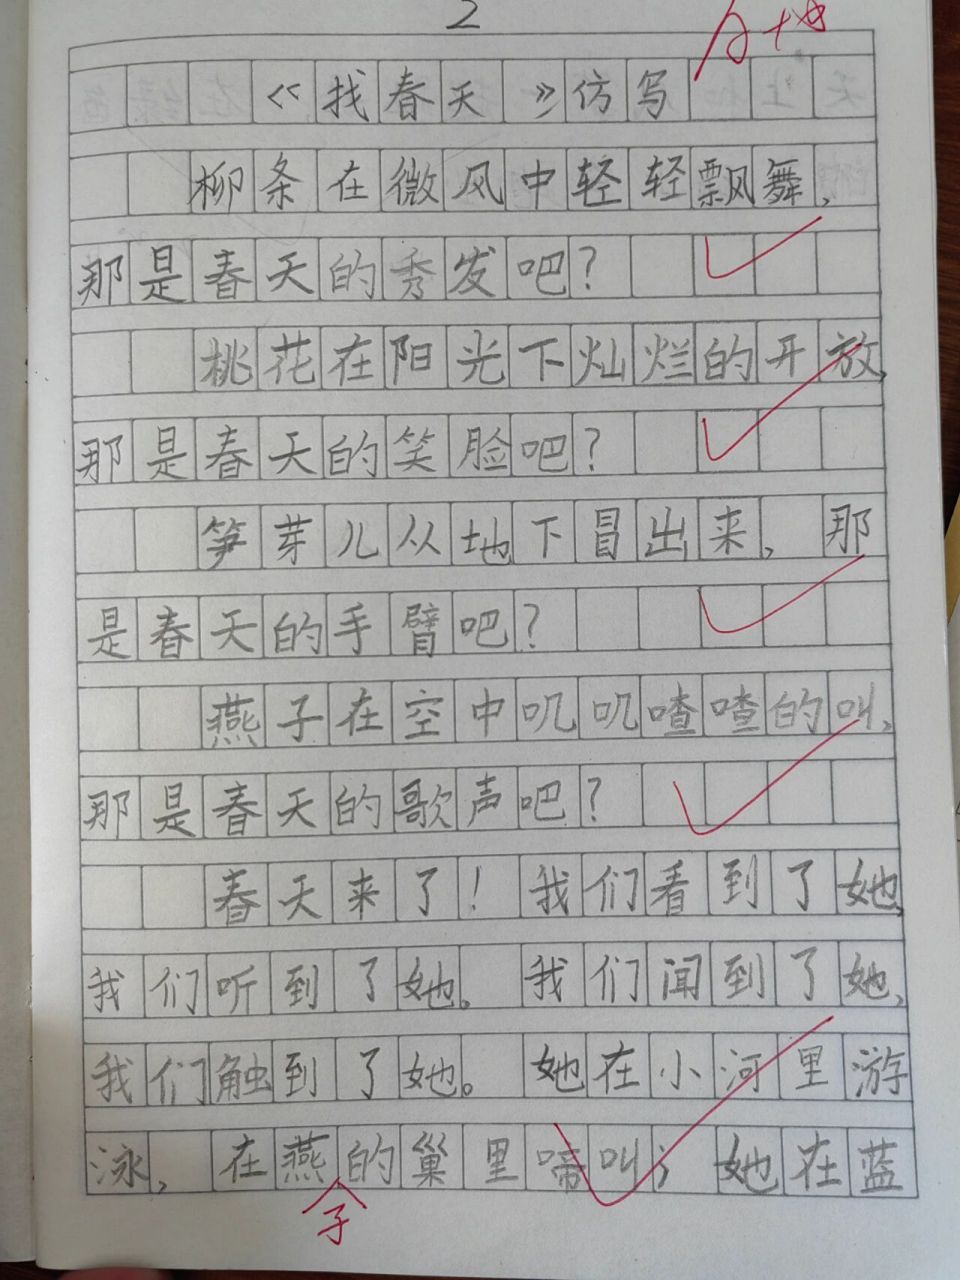 2
《找春天》仿写
柳条在微风中轻轻飘舞，
那是春天的秀发吧？
桃花在阳光下灿烂的开放，
那是春天的笑脸吧？
笋芽儿从地下冒出来，那
是春天的手臂吧？
燕子在空中叽叽喳喳的叫，
那是春天的歌声吧？
春天来了！我们看到了她，
我们听到了她。我们闻到了她，
我们触到了她。她在小河里游
泳，在燕的巢里啼叫；她在蓝
子